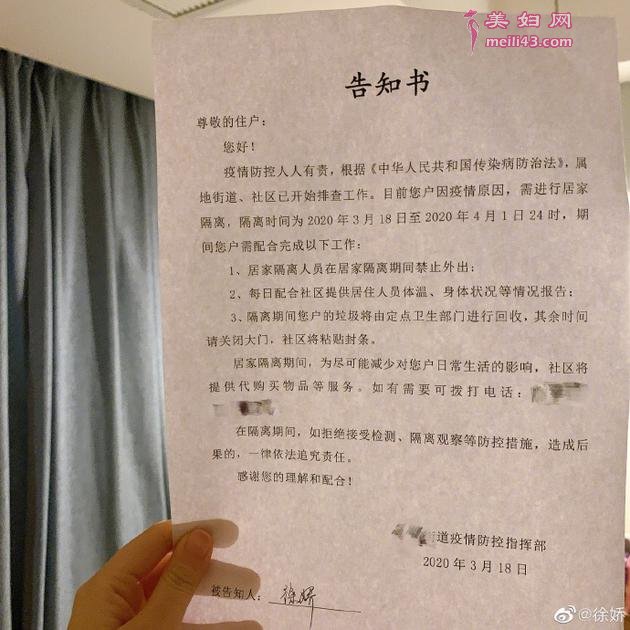 美妇网
meili43.com
告知书
尊敬的住户：
您好！
疫情防控人人有责，根据《中华人民共和国传染病防治法》，属
地街道、社区已开始排查工作。目前您户因疫情原因，需进行居家
隔离，隔离时间为 2020 年 3 月 18 日至 2020 年 4 月 1 日 24 时，期
间您户需配合完成以下工作：
1、居家隔离人员在居家隔离期间禁止外出；
2、每日配合社区提供居住人员体温、身体状况等情况报告；
3、隔离期间您户的垃圾将由定点卫生部门进行回收，其余时间
请关闭大门，社区将粘贴封条。
居家隔离期间，为尽可能减少对您户日常生活的影响，社区将
提供代购买物品等服务。如有需要可拨打电话：
在隔离期间，如拒绝接受检测、隔离观察等防控措施，造成后
果的，一律依法追究责任。
感谢您的理解和配合！
街道疫情防控指挥部
2020 年 3 月 18 日
被告知人：徐娇
@徐娇